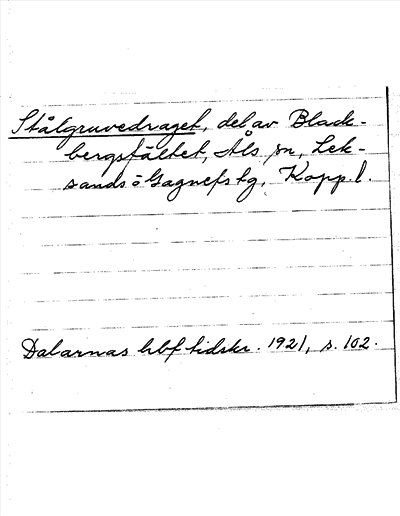 Stålgruvedraget, del av Black-
bergsfältet, Åls sn, Lek-
sands o Gagnefs tg, Kopp. l.
Dalarnas hbf tidskr. 1921, s. 102.